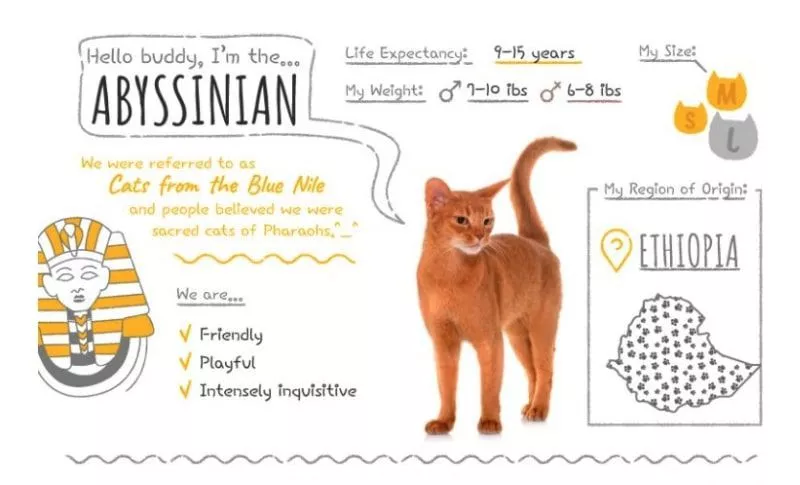 Hello buddy, I'm the...
ABYSSINIAN
Life Expectancy: 9-15 years
My Weight: ♂ 7-10 ibs ♀ 6-8 ibs
My Size:
M
S
L
We were referred to as
Cats from the Blue Nile
and people believed we were
sacred cats of Pharaohs.^_^
We are...
✓ Friendly
✓ Playful
✓ Intensely inquisitive
My Region of Origin:
ETHIOPIA